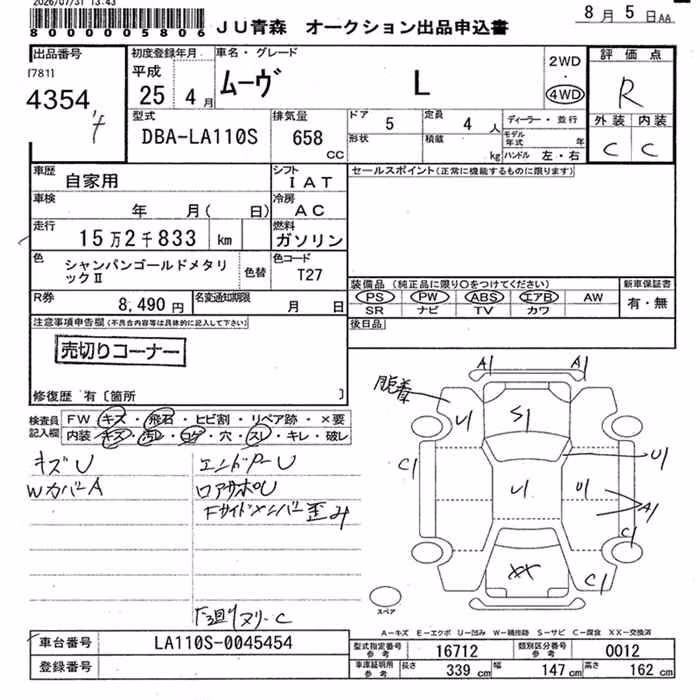 2026/07/31 13:43
8000005806
JU青森 オークション出品申込書
8月5日AA
出品番号
[781]
4354
初度登録年月
平成
25 4月
車名・グレード
ムーヴ L
2WD
・
4WD
評価点
R
外装 内装
C C
型式
DBA-LA110S
排気量
658
cc
ドア
5
定員
4人
形状
積載
kg
ディーラー・並行
モデル年式 年
ハンドル 左・右
車歴
自家用
シフト
IAT
車検
年 月( 日)
冷房
AC
走行
15万2千833 km
燃料
ガソリン
色
シャンパンゴールドメタリ
ックⅡ
色替
色コード
T27
R券
8,490円
名変通知期限
月 日
セールスポイント(正常に機能するものに限ります)
装備品(純正品に限り○をつけてください)
PS PW ABS エアB AW
SR ナビ TV カワ
新車保証書
有・無
後日品
注意事項申告欄(不具合内容等は具体的に記入して下さい)
売切りコーナー
修復歴 有〔箇所 〕
検査員
記入欄
FW キズ・飛石・ヒビ割・リペア跡・×要
内装 キズ・汚レ・コゲ・穴・スレ・キレ・破レ
キズU
WカバーA
エンドPーU
ロアサポU
Fサイドメンバー歪み
下廻りヌリーC
脱着
A1 A1
U1
S1
C1
U1
U1
U1
A1
C1
XX
C1
スペア
A-キズ E-エクボ U-凹み W-補修跡 S-サビ C-腐食 XX-交換済
車台番号
LA110S-0045454
登録番号
型式指定番号
参考
16712
類別区分番号
参考
0012
車庫証明用
参考
長さ
339cm
幅
147cm
高さ
162cm